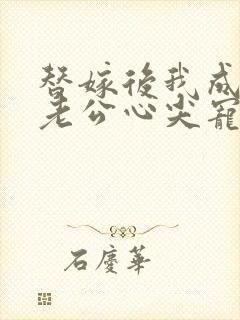 替嫁後我成
老公心尖寵
石慶華